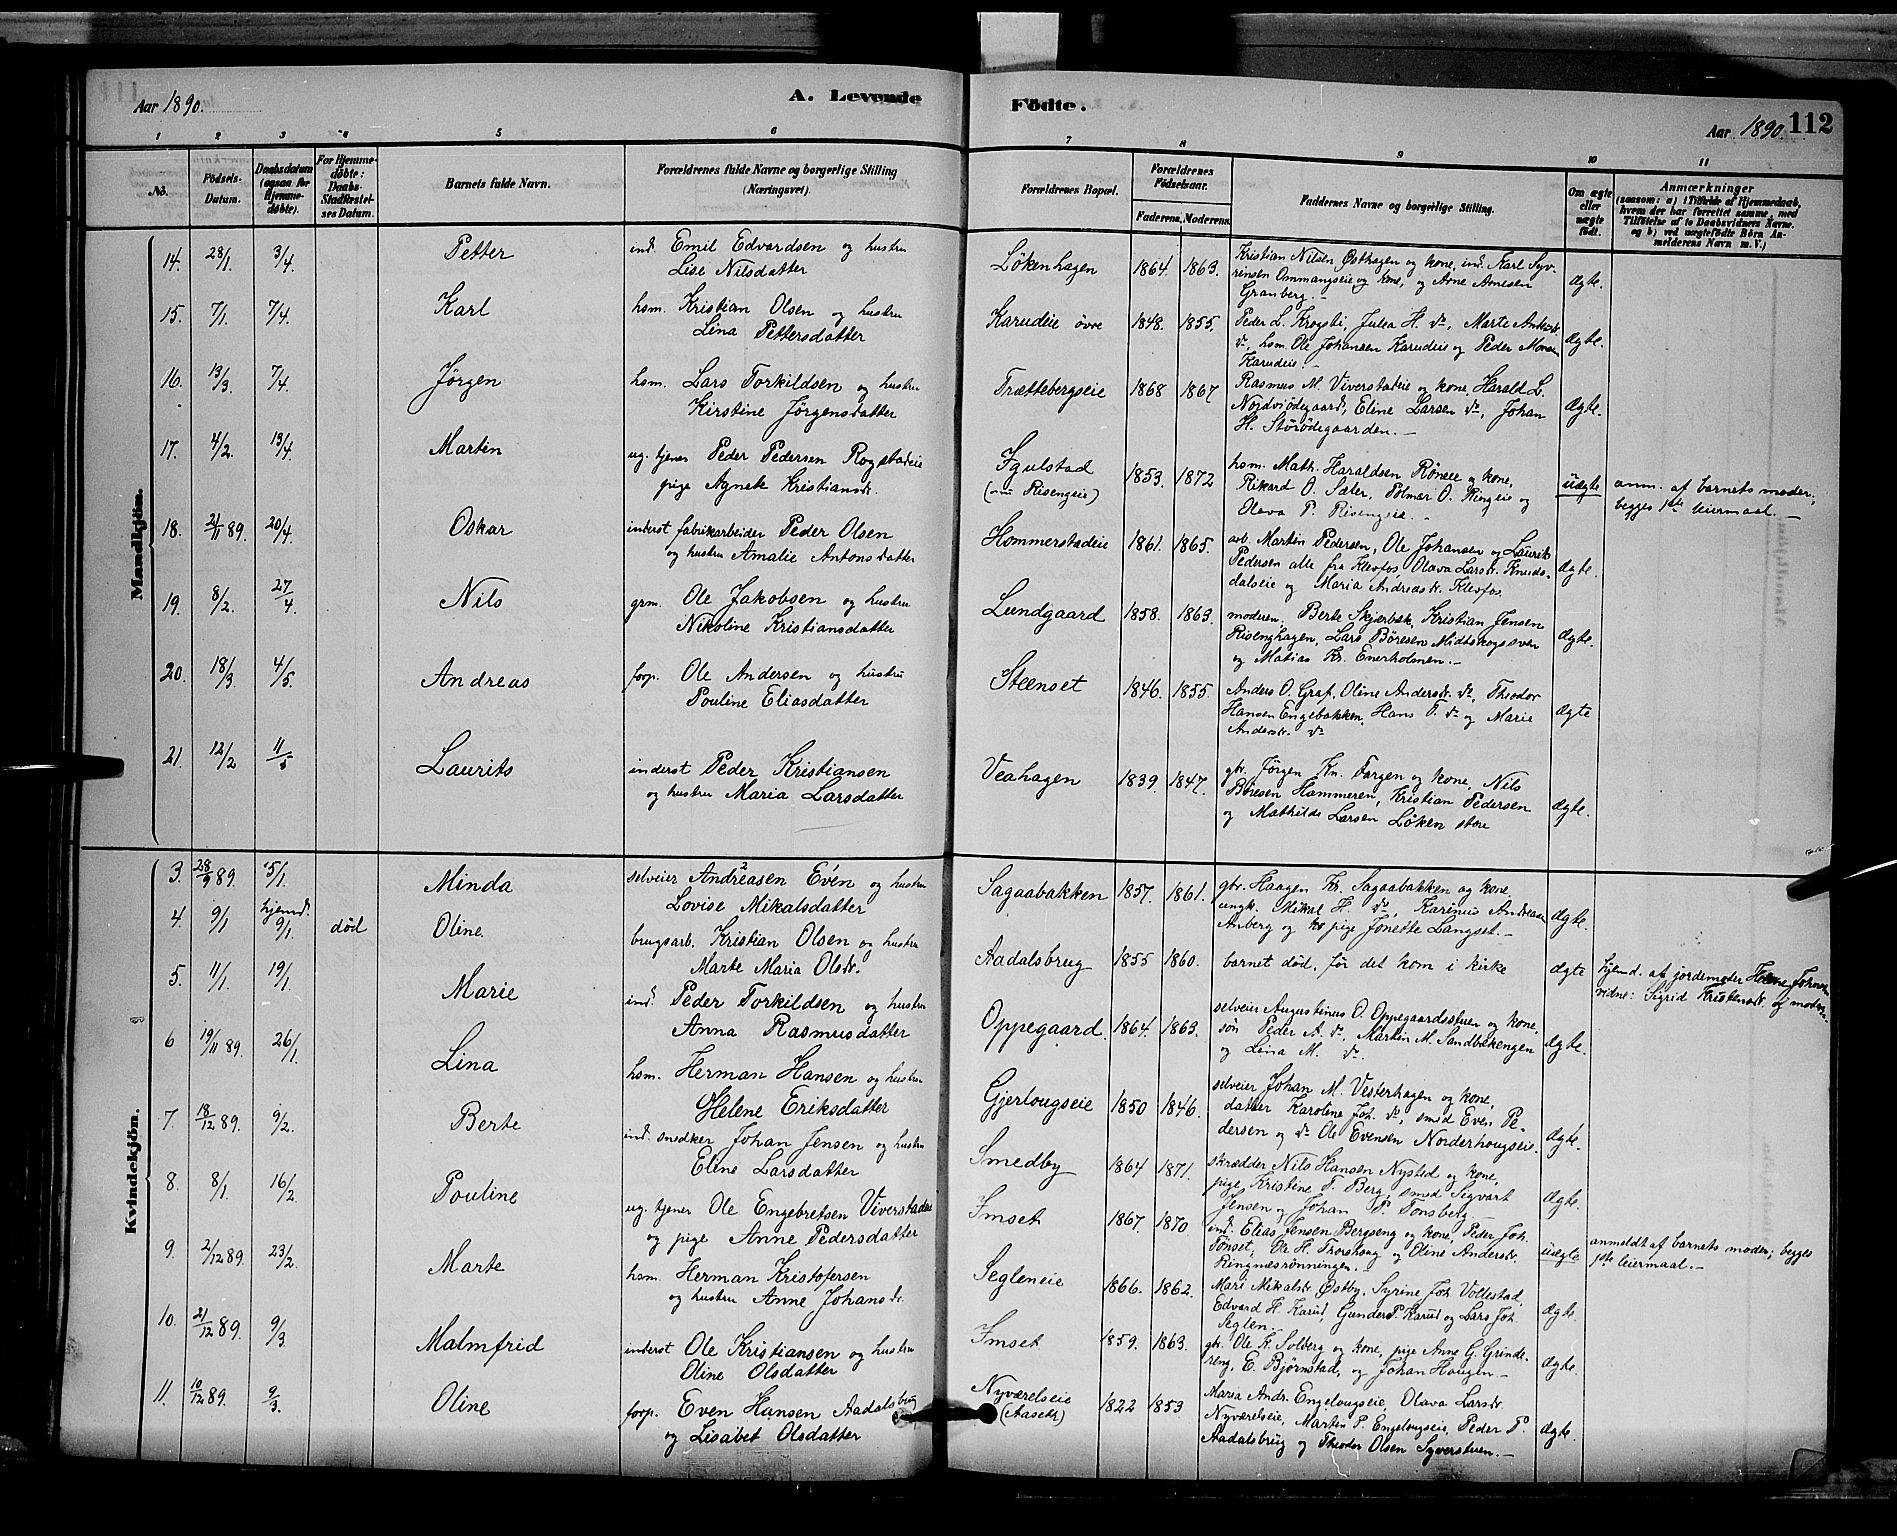 Aar 1890.
A. Levende
Födte.
Aar 1890. 112
1 2 3 4 5 6 7 8 9 10 11
No.
Födsels-Datum.
Daabsdatum (ogsaa for Hjemmedöbte).
For Hjemmedöbte: Daabs-Stadfæstelses Datum.
Barnets fulde Navn.
Forældrenes fulde Navne og borgerlige Stilling (Næringsvei).
Forældrenes Bopæl.
Forældrenes Födselsaar.
Faderens. Moderens.
Faddernes Navne og borgerlige Stilling.
Om ægte eller uægte født.
Anmærkninger
(saasom: a) i Tilfælde af Hjemmedaab, hvem der har forrettet samme, med Tilføielse af to Daabsvidners Navne, og b) ved uægtefödte Börn Anmelderens Navn m. V.)
Mandkjön.
14. 28/1. 3/4. Petter ind. Emil Edvardsen og hustru
Lise Nilsdatter
Løkenhagen 1864. 1863. Kristian Nilsen Østhagen og kone, ind. Karl Syv-
rensen Ommangseie og kone, og Arne Arnesen
Granberg.- Ægte.
15. 7/1. 7/4. Karl hsm. Kristian Olsen og hustru
Lina Pettersdatter
Karudeie övre 1848. 1855. Peder L. Krogsti, Julea H. do, Marte
do, hsm. Ole Johansen Karudeie og Peder Monsen
Karudeie.- Ægte.
16. 13/3 7/4. Jörgen hsm. Lars Torkildsen og hustru
Kirstine Jörgensdatter
Trættebergseie 1868 1867 Rasmus M. Viverstadeie og kone, Harald L.
Nordviödegaard, Eline Larsen do, Johan
H. Störödegaarden.- Ægte.
17. 4/2. 13/4. Marten ug. tjener Peder Pedersen Rogstadeie
pige Agnete Kristiansdr.
Igulstad
(nu Risengeie) 1853. 1872 hsm. Math. Haraldsen Röneie og kone,
Rikard O. Sæter, Polmar O. Ringeie og
Olava P. Risengeie.- uægte anm. af barnets moder;
begges 1ste leiermaal.-
18. 21/11 89. 20/4. Oskar inderst fabrikarbeider Peder Olsen
og hustru Amalie Antonsdatter
Hommerstadeie 1861. 1865. arb. Martin Pedersen, Ole Johansen og Laurits
Pedersen alle fra Klevfos, Olava Larsdr. Knuds-
dalseie og Maria Andreasdr. Klevfos. Ægte.
19. 8/2. 27/4. Nils grm. Ole Jakobsen og hustru
Nikoline Kristiansdatter
Lundgaard 1858. 1863. moderen, Berte Skjerbæk, Kristian Jensen
Risenghagen, Lars Böresen Midtskogsveen
og Matias Kr. Enerholmen.- Ægte.
20. 18/3 4/5. Andreas forp. Ole Andersen og hustru
Pouline Eliasdatter
Steenset 1846. 1855. Anders O. Graf, Oline Andersdr. do, Theodor
Hansen Engebakken, Hans T. do og Marie
Andersdr. do Ægte
21. 12/2 11/5 Laurits inderst Peder Kristiansen
og hustru Maria Larsdatter
Veahagen 1839. 1847. gbr. Jörgen Kn. Fargen og kone, Nils
Boresen Hammeren, Kristian Pedersen
og Mathilde Larsen Löken store Ægte.
Kvindekjön.
3. 28/9 89. 5/1. Minda selveier Andreasen Even og hustru
Lovise Mikalsdatter
Sagaabakken 1857. 1861. gbr. Haagen Kr. Sagaabakken og kone
ungk. Mikal H. do, Karinus Andreasen
Anberg og pige Jonette Langset.- Ægte.
4. 9/1 hjemd. 9/1. död Oline. brugsarb. Kristian Olsen og hustru
Marte Maria Olsdr.
Aadalsbrug 1855 1860. barnet död, för det kom i kirke ægte hjemd. af jordemoder
vidne: Sigrid Kristensdr. og moderen.
5. 11/1. 19/1. Marie ind. Peder Torkildsen og hustru
Anna Rasmusdatter
Oppegaard. 1864. 1863. selveier Augustinus O. Oppegaardsstuen og kone,
sön Peder A. do, Marten M. Sandbakengen
og Lina M. do. Ægte.
6 19/11 89. 26/1. Lina hsm. Herman Hansen og hustru
Helene Eriksdatter
Gjerlougseie 1850 1846. selveier Johan M. Vesterhagen og kone,
datter Karoline Joh. do, smed Even Pe-
dersen og do Ole Evensen Norderhougseie. Ægte.
7. 18/12 89. 9/2. Berte ind. snedker Johan Jensen og hustru
Eline Larsdatter
Smedby 1864 1871. skrædder Nils Hansen Nysted og kone,
pige Kristine T. Berg, smed Segvart
Jensen og Johan P. Tonsberg.- Ægte.
8. 8/1. 16/2. Pouline ug. tjener Ole Engebretsen Viverstadeie
og pige Anne Pedersdatter
Imset 1867. 1870. ind. Elias Jensen Bergseng og kone, Peder Joh.
Tönset, Ole H. Troshaug og Oline Andersdr.
Ringnæsrønningen.- uægte anmeldt af barnets moder; begges
1ste leiermaal.-
9. 2/12 89. 23/2. Marte hsm. Herman Kristofersen
og hustru Anne Johansdr.
Segleneie 1866. 1862. Mari Mikalsdr. Østby, Syrine Joh. Vollestad,
Edvard H. Karud, Gunder P. Karud og Lars Joh.
Seglen.- Ægte.
10. 21/12 89. 9/3. Malmfrid inderst Ole Kristiansen og hustru
Oline Olsdatter
Imset 1859. 1863. gbr. Ole K. Solberg og kone, pige Anne G. Grinde-
reng, E. Björnstad, og Johan Haugen.- Ægte.
11. 10/12 89. 9/3. Oline forp. Even Hansen Aadalsbrug
og Lisabet Olsdatter
Nyværelseie
(Aaseth) 1822 1853 Maria Andr. Engelougseie, Olava Larsdr.
Nyværelseie, Martin P. Engelougseie, Peder P.
Aadalsbrug og Theodor Olsen Syverstuen.- Ægte.